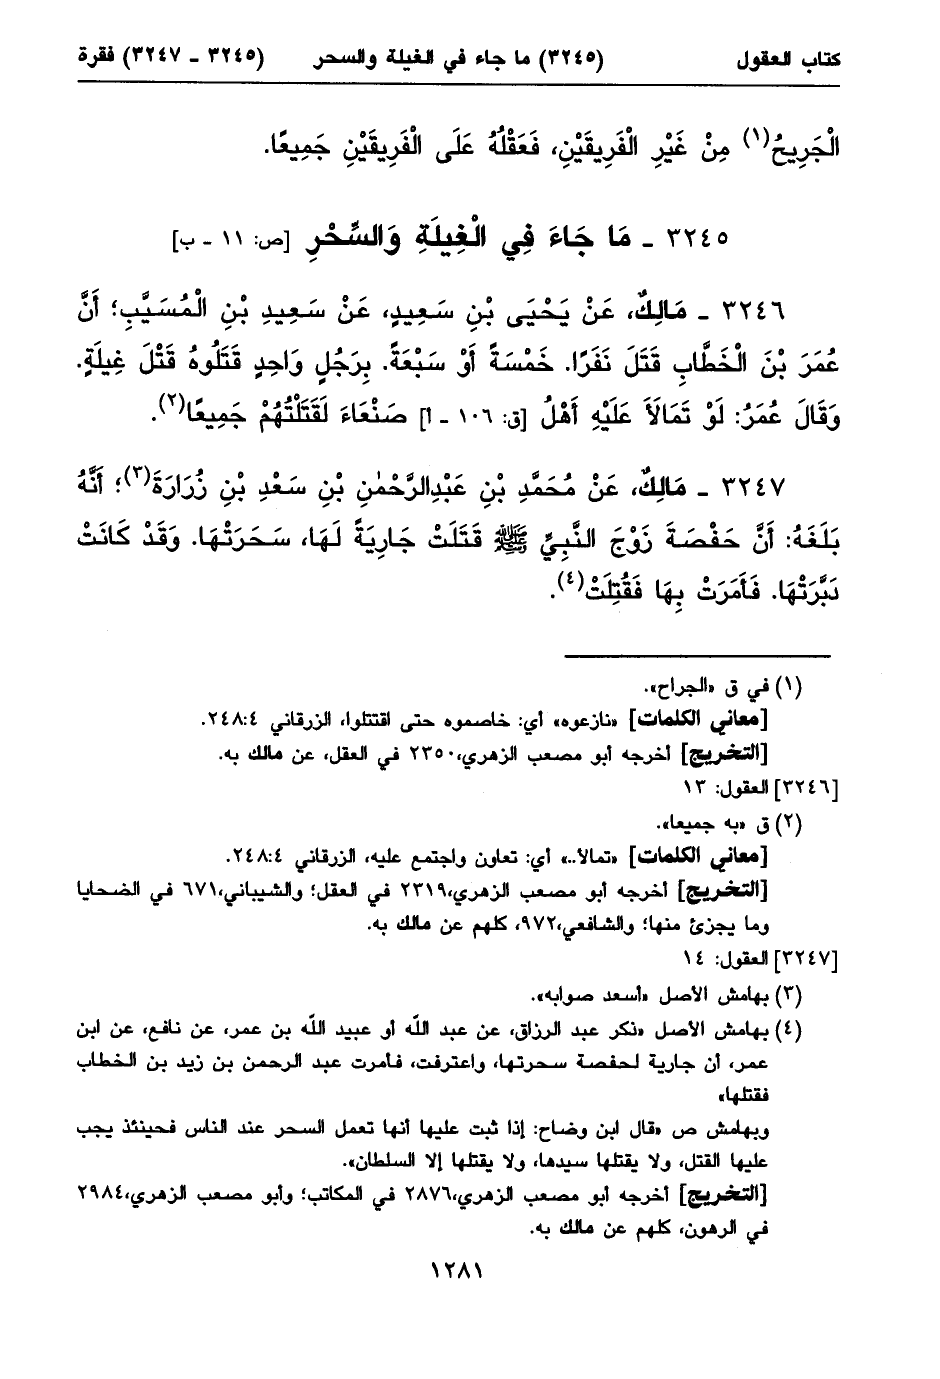 كتاب العقول (٣٢٤٥) ما جاء في الغيلة والسحر (٣٢٤٥ - ٣٢٤٧) فقرة
الْجَرِيحُ(١) مِنْ غَيْرِ الْفَرِيقَيْنِ، فَعَقْلُهُ عَلَى الْفَرِيقَيْنِ جَمِيعًا.
٣٢٤٥ - مَا جَاءَ فِي الْغِيلَةِ وَالسِّحْرِ [ص: ١١ - ب]
٣٢٤٦ - مَالِكٌ، عَنْ يَحْيَى بْنِ سَعِيدٍ، عَنْ سَعِيدِ بْنِ الْمُسَيَّبِ؛ أَنَّ
عُمَرَ بْنَ الْخَطَّابِ قَتَلَ نَفَرًا. خَمْسَةً أَوْ سَبْعَةً. بِرَجُلٍ وَاحِدٍ قَتَلُوهُ قَتْلَ غِيلَةٍ.
وَقَالَ عُمَرُ: لَوْ تَمَالَأَ عَلَيْهِ أَهْلُ [ق: ١٠٦ - أ] صَنْعَاءَ لَقَتَلْتُهُمْ جَمِيعًا(٢).
٣٢٤٧ - مَالِكٌ، عَنْ مُحَمَّدِ بْنِ عَبْدِالرَّحْمٰنِ بْنِ سَعْدِ بْنِ زُرَارَةَ(٣)؛ أَنَّهُ
بَلَغَهُ: أَنَّ حَفْصَةَ زَوْجَ النَّبِيِّ ﷺ قَتَلَتْ جَارِيَةً لَهَا، سَحَرَتْهَا. وَقَدْ كَانَتْ
دَبَّرَتْهَا. فَأَمَرَتْ بِهَا فَقُتِلَتْ(٤).
(١) في ق «الجراح».
[معاني الكلمات] «نازعوه» أي: خاصموه حتى اقتتلوا، الزرقاني ٢٤٨:٤.
[التخريج] أخرجه أبو مصعب الزهري، ٢٣٥٠ في العقل، عن مالك به.
[٣٢٤٦] العقول: ١٣
(٢) ق «به جميعا».
[معاني الكلمات] «تمالأ..» أي: تعاون واجتمع عليه، الزرقاني ٢٤٨:٤.
[التخريج] أخرجه أبو مصعب الزهري، ٢٣١٩ في العقل؛ والشيباني، ٦٧١ في الضحايا
وما يجزئ منها؛ والشافعي، ٩٧٢، كلهم عن مالك به.
[٣٢٤٧] العقول: ١٤
(٣) بهامش الأصل «أسعد صوابه».
(٤) بهامش الأصل «نكر عبد الرزاق، عن عبد الله أو عبيد الله بن عمر، عن نافع، عن ابن
عمر، أن جارية لحفصة سحرتها، واعترفت، فأمرت عبد الرحمن بن زيد بن الخطاب
فقتلها»
وبهامش ص «قال ابن وضاح: إذا ثبت عليها أنها تعمل السحر عند الناس فحينئذ يجب
عليها القتل، ولا يقتلها سيدها، ولا يقتلها إلا السلطان».
[التخريج] أخرجه أبو مصعب الزهري، ٢٨٧٦ في المكاتب؛ وأبو مصعب الزهري، ٢٩٨٤
في الرهون، كلهم عن مالك به.
١٢٨١